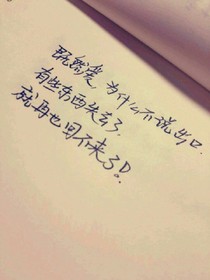 既然爱，为什么不说出口.
有些东西失去了.
就再也回不来了!